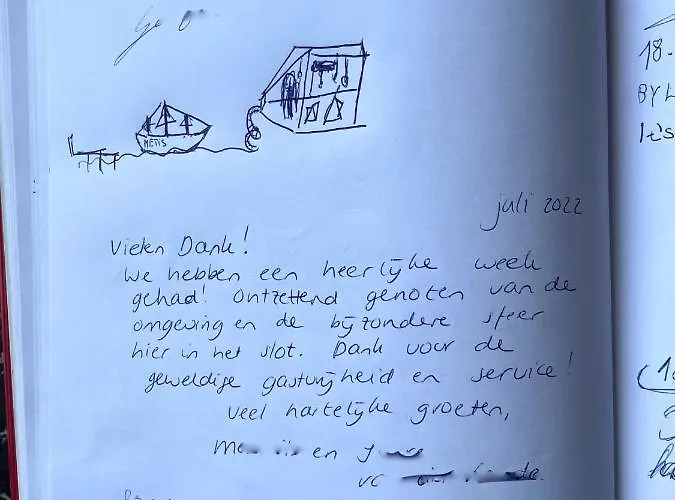 METIS
juli 2022
Vielen Dank!
We hebben een heerlijke week
gehad! Ontzettend genoten van de
omgeving en de bijzondere sfeer
hier in het slot. Dank voor de
geweldige gastvrijheid en service!
Veel hartelijke groeten,
en
18.
BY
It's